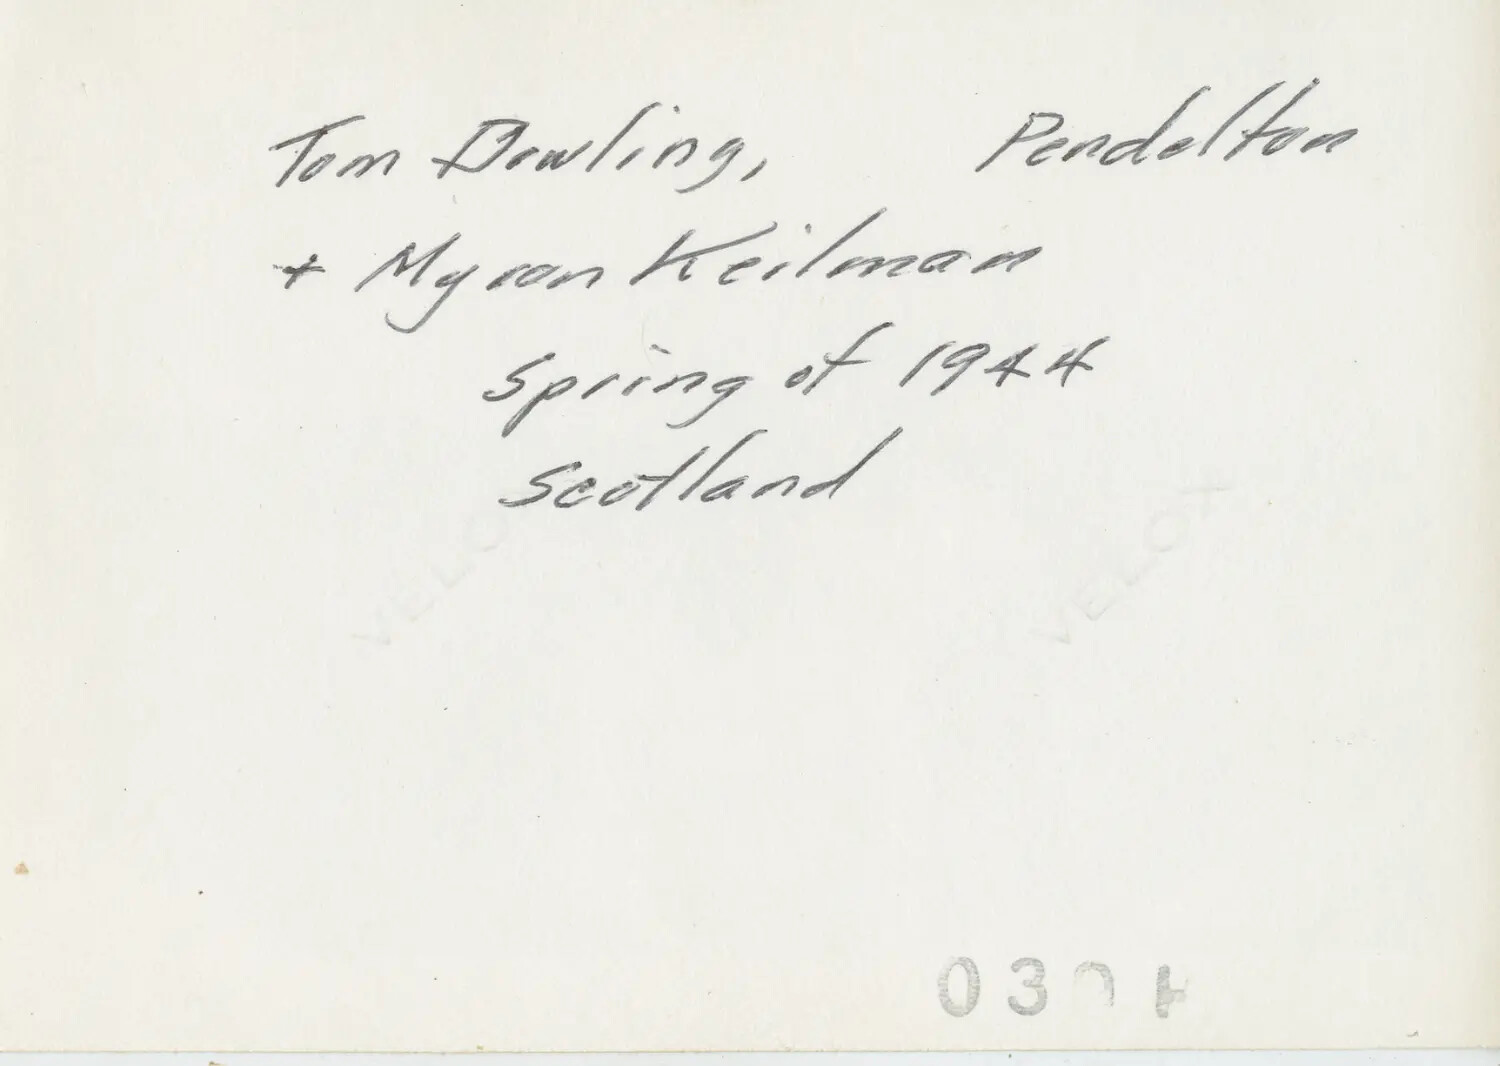 Tom Dowling, Pendelton
+ Myron Keilman
Spring of 1944
Scotland
VELOX VELOX
03